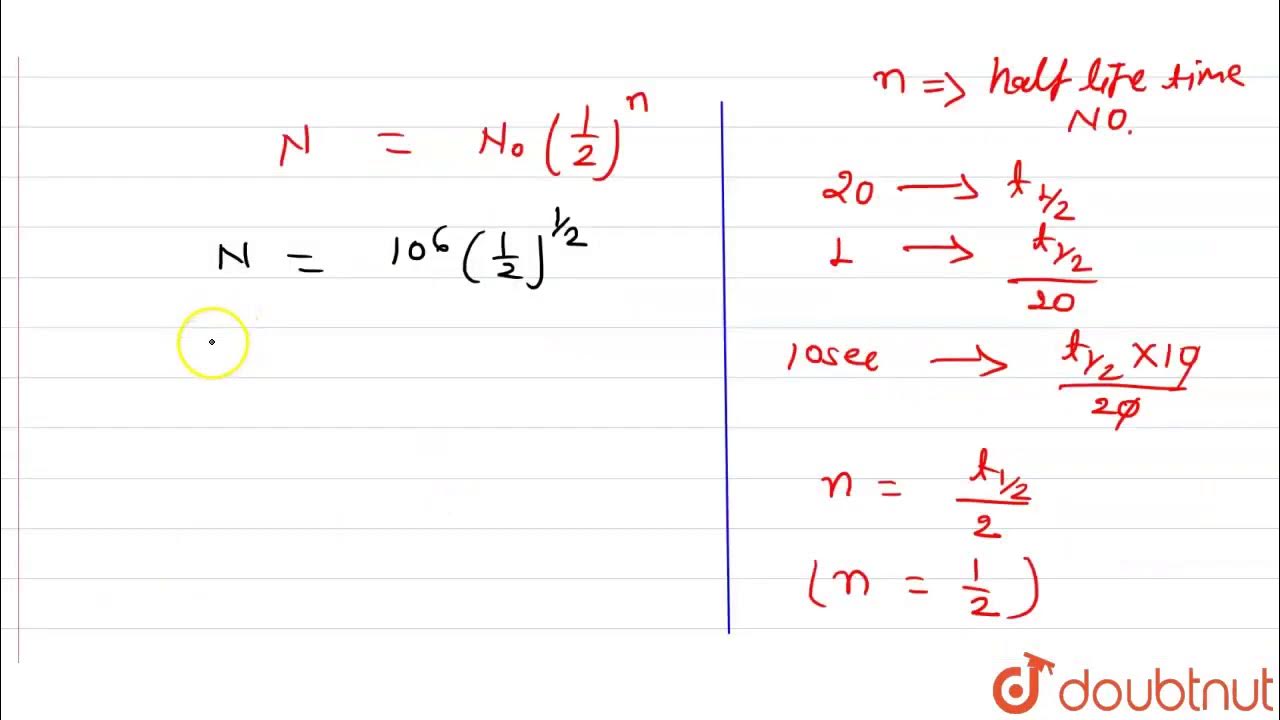 N = N₀ (1/2)ⁿ
N = 10⁶ (1/2)^1/2
n => half life time
NO.
20 → t1/2
1 → t1/2 / 20
10sec → t1/2 × 10 / 20
n = t1/2 / 2
(n = 1/2)
doubtnut